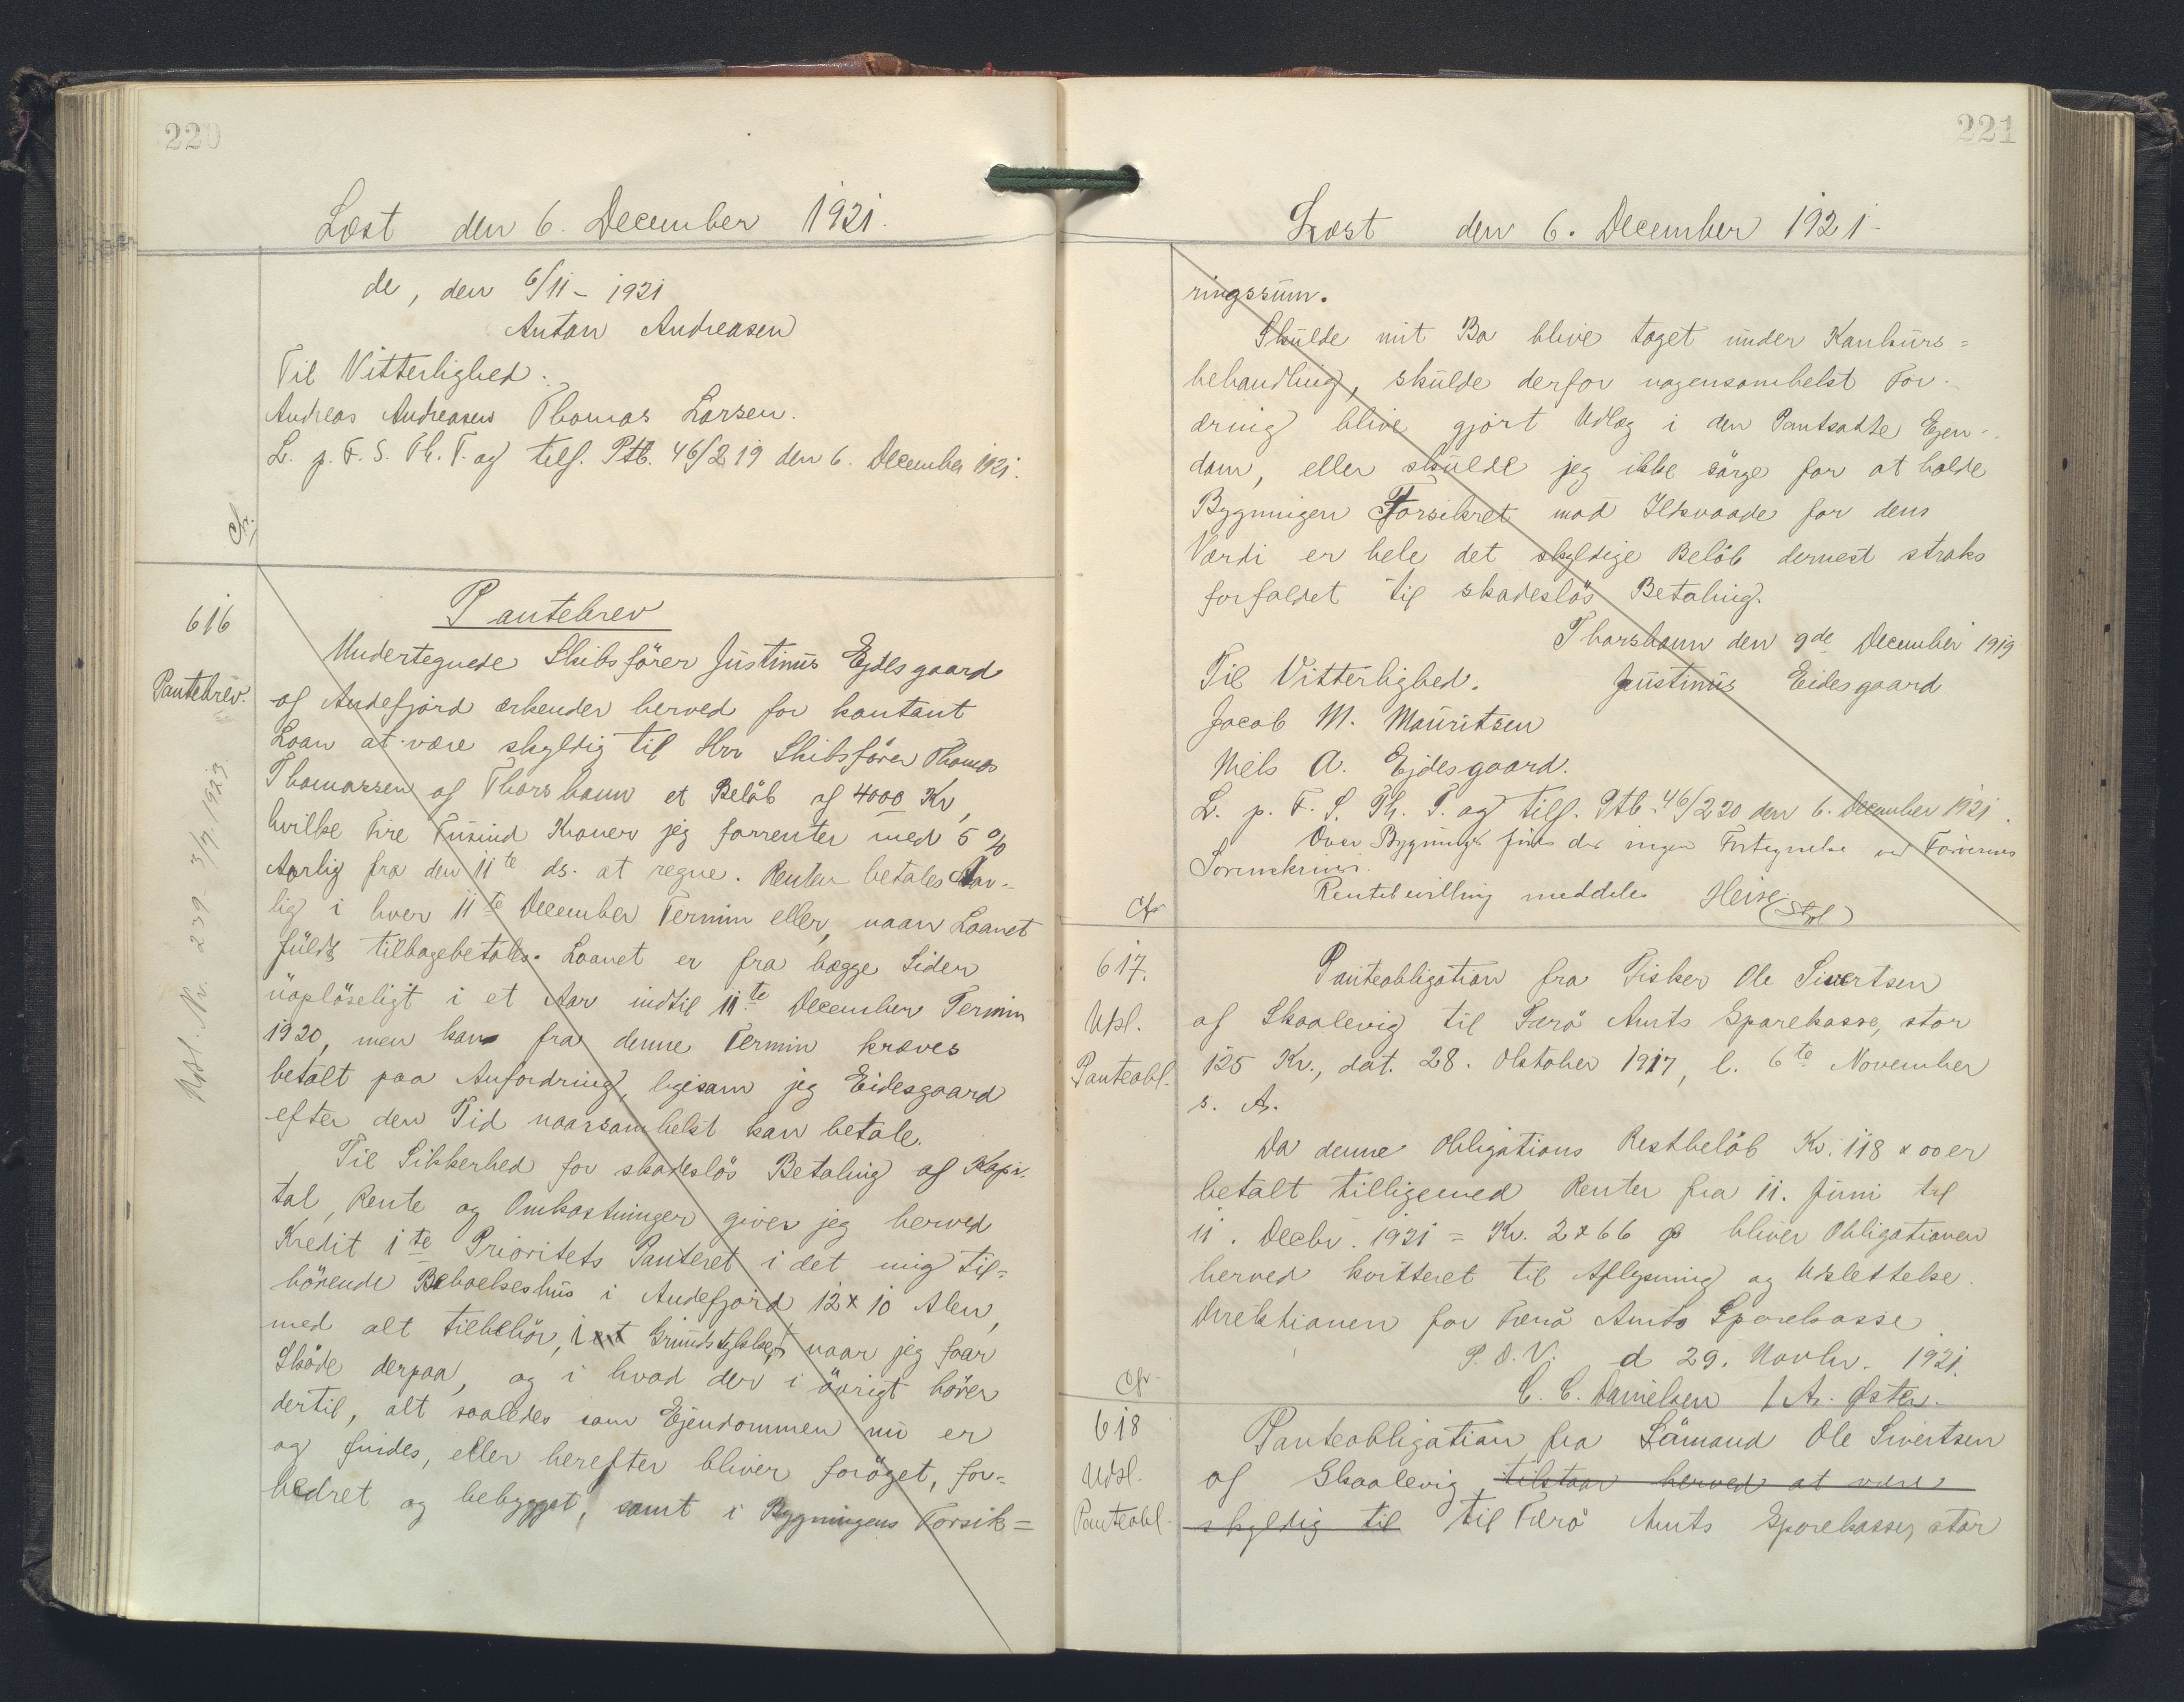 220
Læst den 6. December 1921.
de, den 6/11 - 1921
Anton Andreasen
Til Vitterlighed:
Andreas Andreasen Thomas Larsen.
L. p. F. S. Th. T. og tilf. Ptb. 46/219 den 6. December 1921.
Cfr.
616
Pantebrev.
Udsl. Nr. 239 3/7. 1923.
Pantebrev
Undertegnede Skibsförer Justinus Ejdesgaard
af Andefjord erkender herved for kontant
Loan at være skyldig til Hrr Skibsförer Thomas
Thomassen af Thorshavn et Belöb af 4000 Kr,
hvilke Fire Tusind Kroner jeg forrenter med 5 %
Aarlig fra den 11te ds. at regne. Renten betales Aar-
lig i hver 11te December Termin eller, naar Loanet
fuldt tilbagebetales. Loanet er fra begge Sider
uoplöseligt i et Aar indtil 11te December Termin
1920, men kan fra denne Termin kræves
betalt paa Anfordring, ligesom jeg Eidesgaard
efter den Tid naarsomhelst kan betale.
Til Sikkerhed for skadeslös Betaling af Kapi-
tal, Rente og Omkostninger giver jeg herved
Kredit 1te Prioritets Panteret i det mig til=
hörende Beboelseshus i Andefjord 12 x 10 Alen,
med alt tilbehör, i et Grundstykke, naar jeg faar
Sköde derpaa, og i hvad der i övrigt hörer
dertil, alt saaledes som Ejendommen nu er
og findes, eller herefter bliver foröget, for=
bedret og bebygget, samt i Bygningens Forsik=
221
Læst den 6. December 1921-
ringssum.
Skulde mit Bo blive taget under Konkurs=
behandling, skulde derfor nogensomhelst For-
dring blive gjort Udlæg i den Pantsatte Ejen-
dom, eller skulde jeg ikke sörge for at holde
Bygningen Forsikret mod Ildsvaade for dens
Værdi er hele det skyldige Belöb dernest straks
forfaldet til skadeslös Betaling.
Thorshavn den 9de December 1919
Til Vitterlighed. Justinus Eidesgaard
Jacob M. Mouritsen
Niels A. Ejdesgaard.
L. p. F. S. Th. T. og tilf. Ptb. 46/220 den 6. December 1921.
Over Bygninger findes der ingen Fortegnelse ved Færøernes
Sorenskriveri.
Retsbevilling meddeles Heise (Stpl)
Cfr
617.
Udsl.
Panteobl.
Panteobligation fra Fisker Ole Sivertsen
af Skaalevig til Færö Amts Sparekasse, stor
125 Kr., dat. 28. Oktober 1917, l. 6te November
s. A.
Da denne Obligations Restbelöb Kr. 118 x 00 er
betalt tilligemed Renter fra 11. Juni til
11. Decbr. 1921 = Kr. 2 x 66 Ø bliver Obligationen
herved kvitteret til Aflysning og Udslettelse.
Direktionen for Færö Amts Sparekasse
P. D. V. d 29. Novbr. 1921.
C. C. Danielsen / A. Øster.
Cfr
618
Udsl.
Panteobl.
Panteobligation fra Sömand Ole Sivertsen
af Skaalevig tilstaar herved at være
skyldig til til Færö Amts Sparekasse, stor